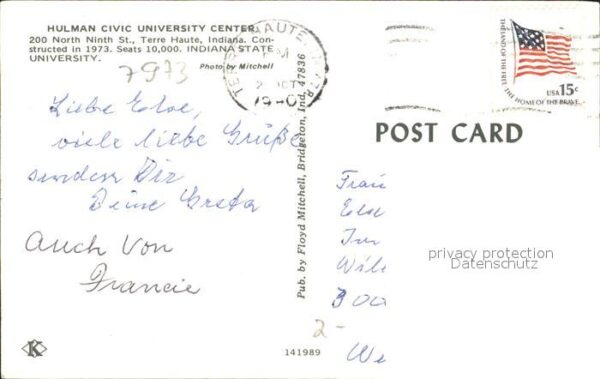 HULMAN CIVIC UNIVERSITY CENTER
200 North Ninth St., Terre Haute, Indiana. Con-
structed in 1973. Seats 10,000. INDIANA STATE
UNIVERSITY.
Photo by Mitchell
7973
TERRE HAUTE, IN
PM
OCT
THE LAND OF THE FREE
THE HOME OF THE BRAVE
USA 15c
POST CARD
Liebe Else,
viele liebe Grüße
senden Dir
Deine Greta
Auch Von
Francie
Pub. by Floyd Mitchell, Bridgeton, Ind. 47836
Frau
Els
Wil
300
We
privacy protection
Datenschutz
2-
K
141989